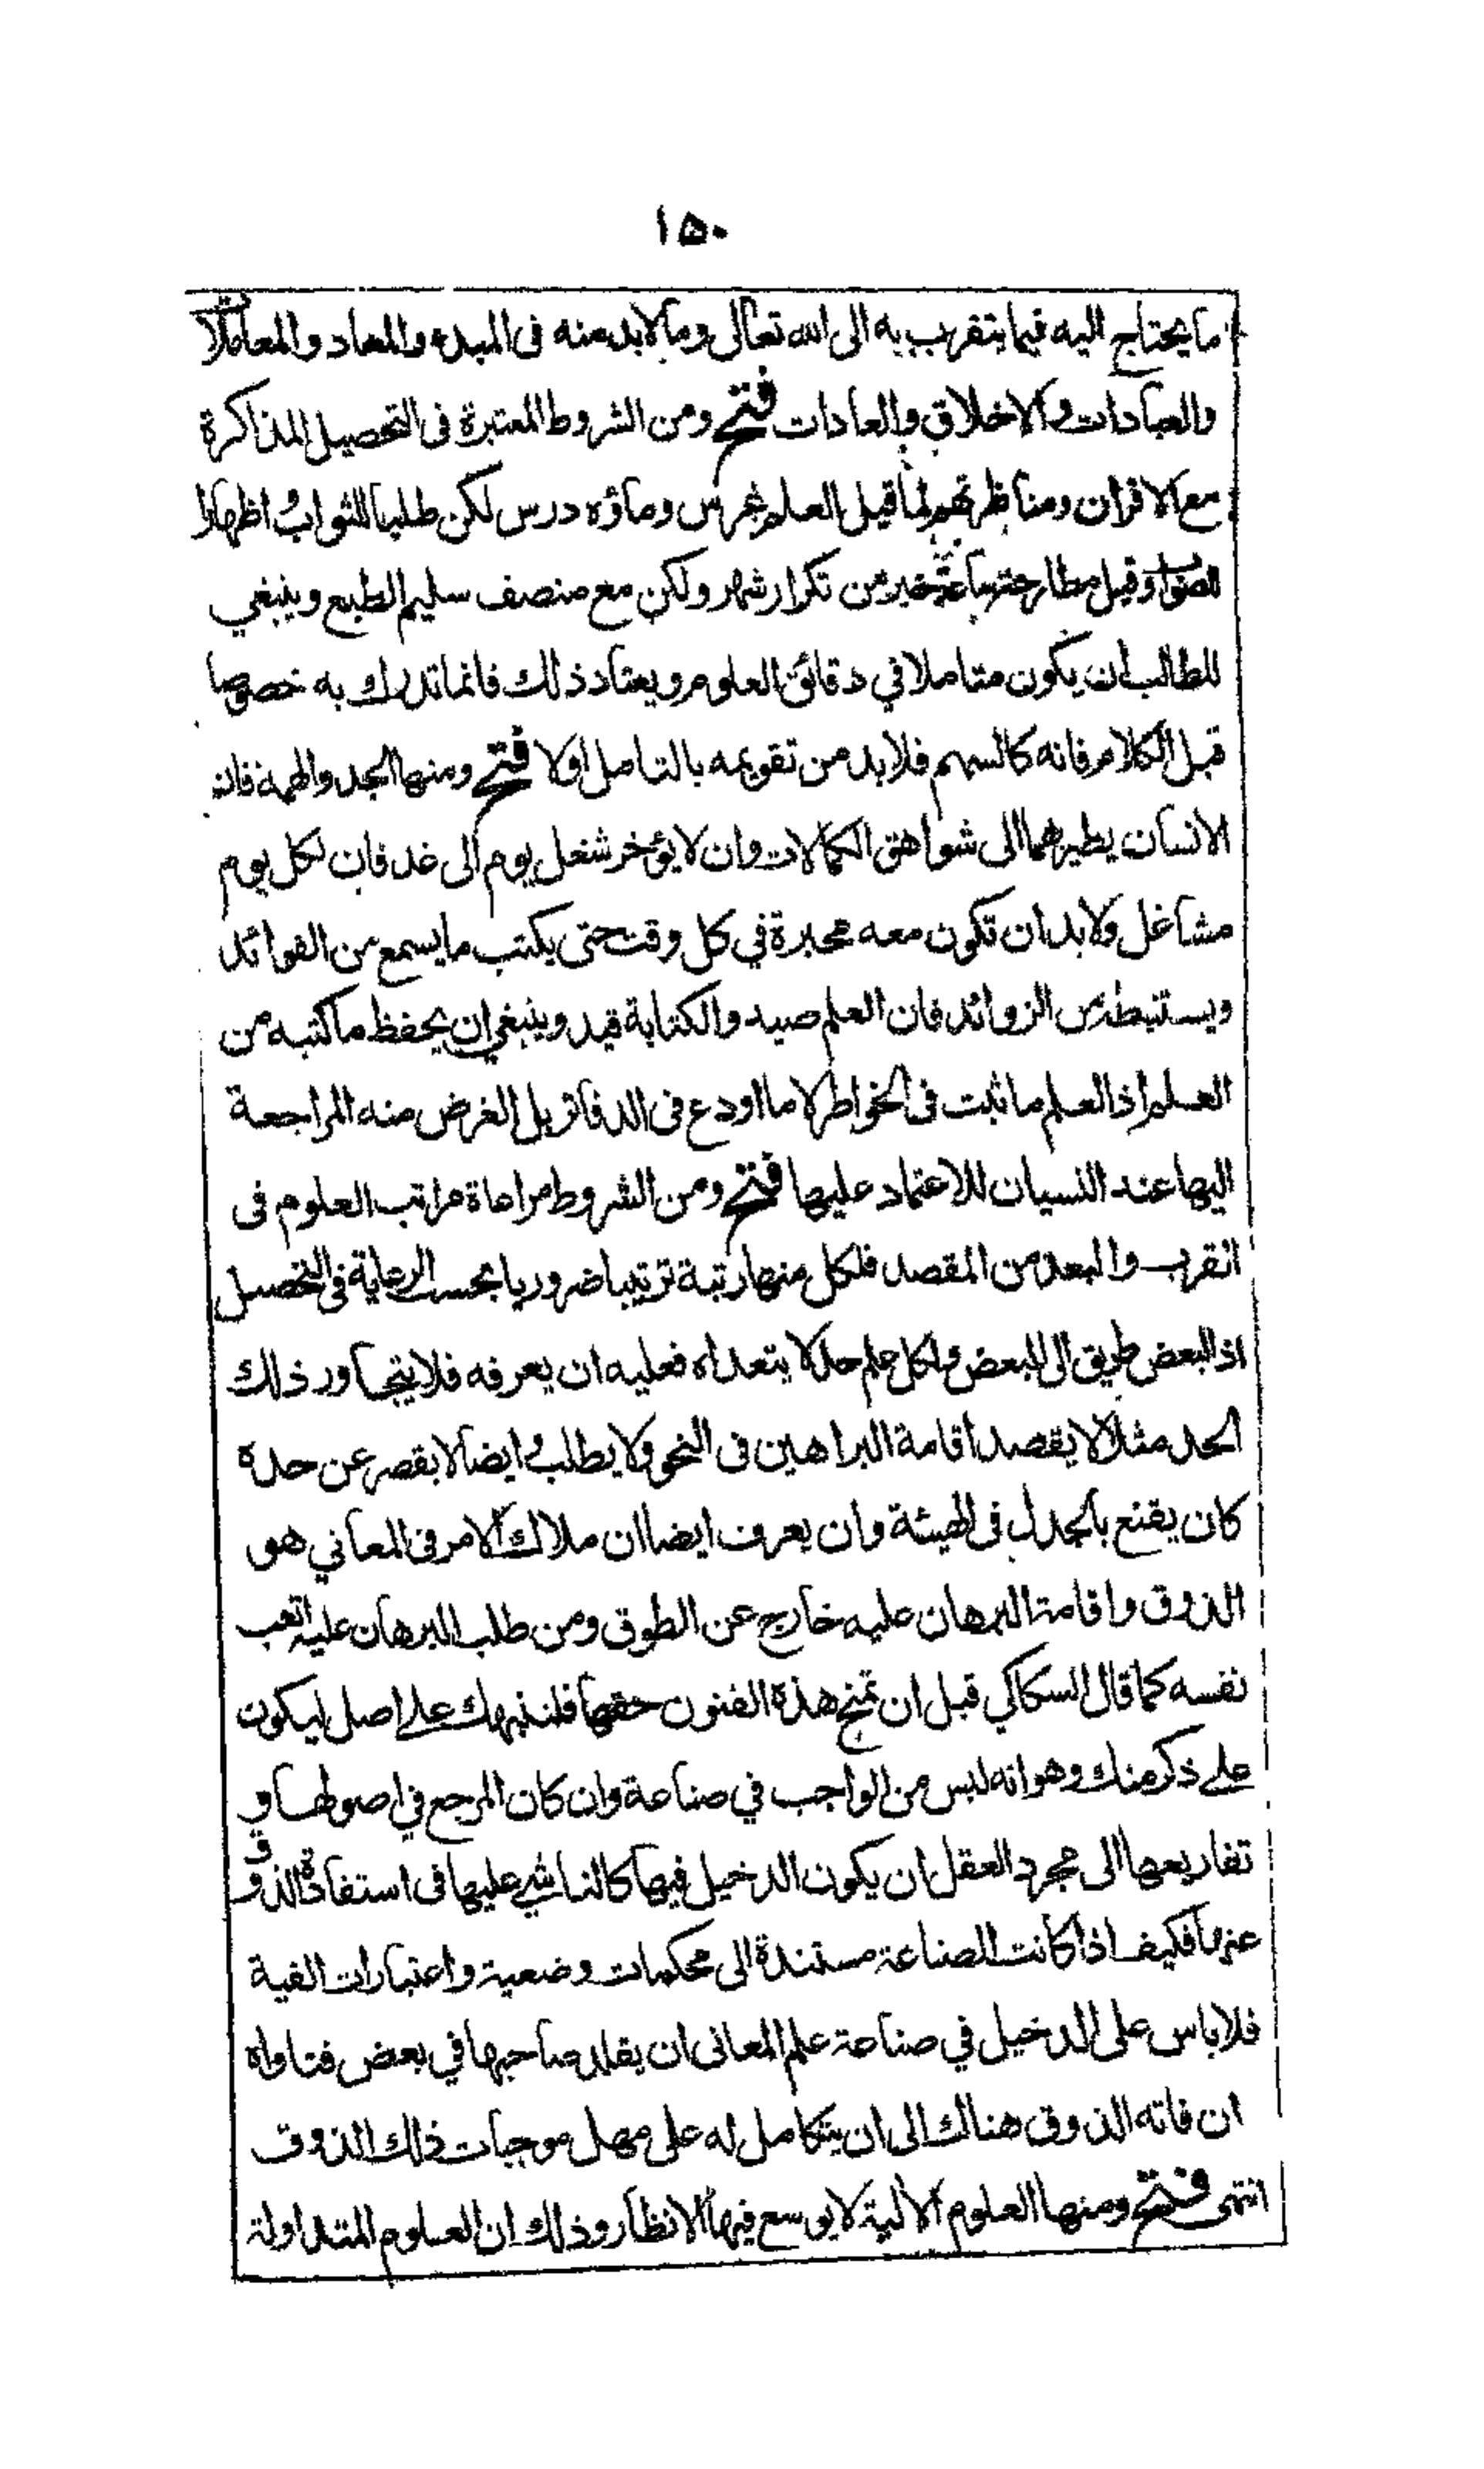 ۱۵۰
ما يحتاج اليه فيما يتقرب به الى الله تعالى وما لا بد منه فى المبدء والمعاد والمعاملات
والعبادات والاخلاق والعادات فتح ومن الشروط المعتبرة فى التحصيل المذاكرة
مع الاقران ومناظرتهم لما قيل العلم غرس وماؤه درس لكن طلبا للثواب واظهارا
للصواب وقيل مطارحة ساعة خير من تكرار شهر ولكن مع منصف سليم الطبع وينبغي
للطالب ان يكون متاملا في دقائق العلوم ويعتاد ذلك فانما تدرك به خصوصا
قبل الكلام فانه كالسهم فلا بد من تقويمه بالتامل اولا فتح ومنها الجد والهمة فان
الانسان يطير بهما الى شواهق الكمالات وان لا يؤخر شغل يوم الى غد فان لكل يوم
مشاغل ولا بد ان تكون معه محبرة في كل وقت حتى يكتب ما يسمع من الفوائد
ويستنبط من الزوائد فان العلم صيد والكتابة قيد وينبغي ان يحفظ ما كتبه من
العلم اذ العلم ما ثبت فى الخواطر لا ما اودع فى الدفاتر بل الغرض منه المراجعة
اليها عند النسيان للاعتماد عليها فتح ومن الشروط مراعاة مراتب العلوم فى
القرب والبعد من المقصد فلكل منها رتبة ترتيبا ضروريا بحسب الرعاية فى التحصيل
اذ البعض طريق الى البعض ولكل علم حد لا يتعداه فعليه ان يعرفه فلا يتجاوز ذلك
الحد مثلا لا يقصد اقامة البراهين فى النحو ولا يطلب وايضا لا يقصر عن حده
كان يقنع بالجدل فى الهيئة وان يعرف ايضا ان ملاك الامر فى المعاني هو
الذوق واقامة البرهان عليه خارج عن الطوق ومن طلب البرهان عليه اتعب
نفسه كما قال السكاكي قبل ان تمنح هذه الفنون حقها فلننبهك على اصل ليكون
على ذكر منك وهو انه ليس من الواجب في صناعة وان كان المرجع في اصولها و
تفاريعها الى مجرد العقل ان يكون الدخيل فيها كالناشي عليها فى استفادة الذوق
عنها فكيف اذا كانت الصناعة مستندة الى محكمات وضعية واعتبارات الفية
فلا باس على الدخيل في صناعة علم المعانى ان يقلد صاحبها في بعض فتاواه
ان فاته الذوق هناك الى ان يتكامل له على مهل موجبات ذلك الذوق
انتهى فتح ومنها العلوم الالية لا يوسع فيها الانظار وذلك ان العلوم المتداولة